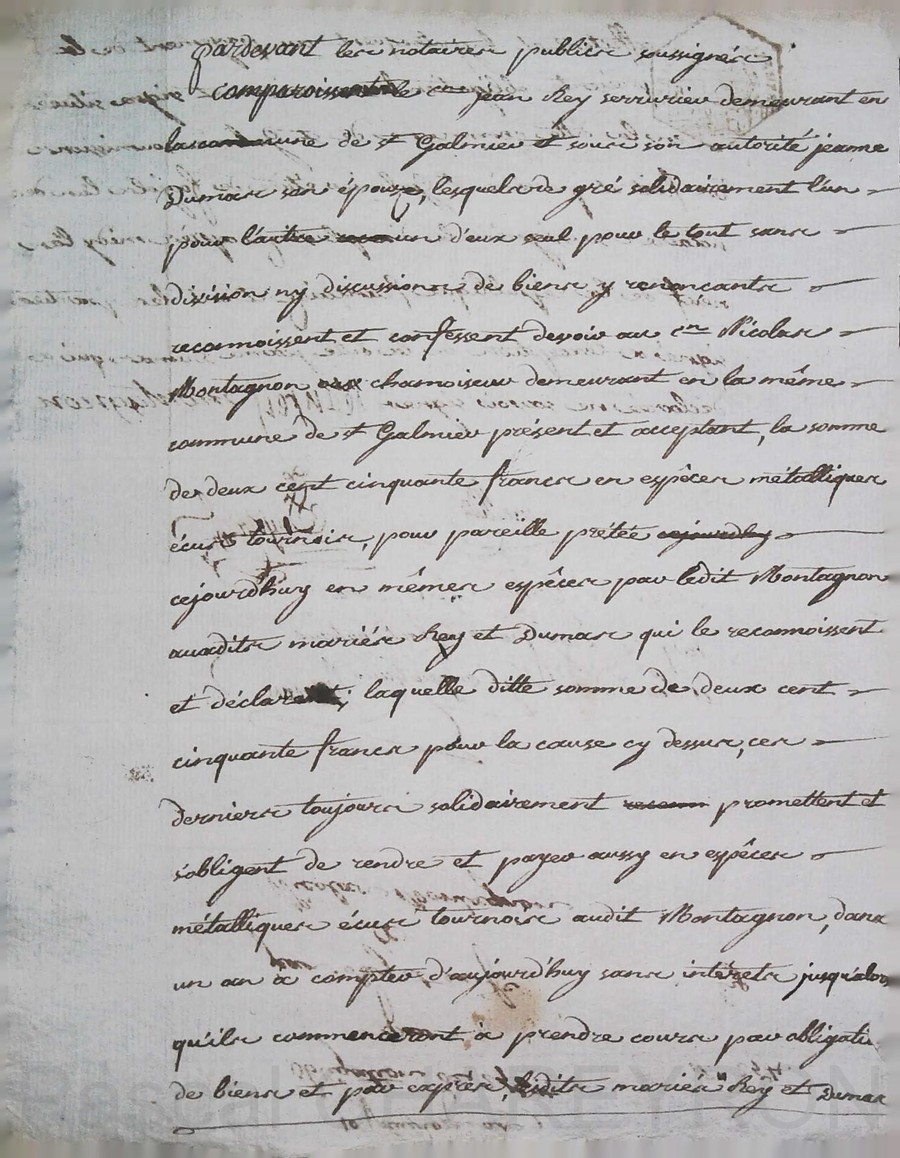 pardevant les notaires publics soussignés
comparoissent le cen jean Rey serrurier demeurant en
la commune de st Galmier et sous son autorité jeanne
Dumas son épouse, lesquels de gré solidairement l'un
pour l'autre un d'eux seul pour le tout sans
division ny discussions de biens y renoncants
reconnoissent et confessent devoir au cen Nicolas
Montagnon chamoiseur demeurant en la même
commune de st Galmier présent et acceptant, la somme
de deux cent cinquante francs en espêces métalliques
écus tournois, pour pareille prétée cejourdhuy
cejourd'huy en mêmes espêces par ledit Montagnon
auxdits mariés Rey et Dumas qui le reconnoissent
et déclarent, laquelle ditte somme de deux cent
cinquante francs pour la cause cy dessus, ces
derniers toujours solidairement promettent et
s'obligent de rendre et payer aussy en espêces
métalliques écus tournois audit Montagnon, dans
un an à compter d'aujourd'huy sans intérets jusqu'alors
qu'ils commenceront à prendre cours par obligati
de biens et par exprès, lesdits mariés Rey et Dumas